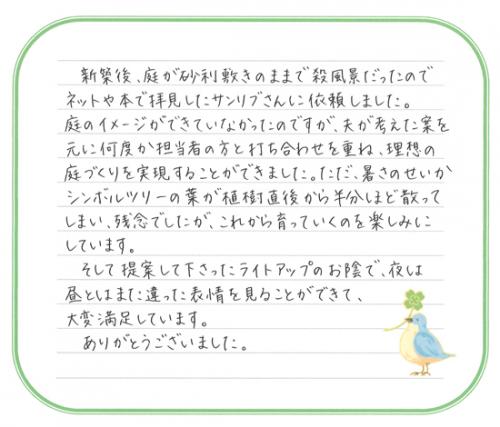 新築後、庭が砂利敷きのままで殺風景だったので
ネットや本で拝見したサンリブさんに依頼しました。
庭のイメージができていなかったのですが、夫が考えた案を
元に何度か担当者の方と打ち合わせを重ね、理想の
庭づくりを実現することができました。ただ、暑さのせいか
シンボルツリーの葉が植樹直後から半分ほど散って
しまい、残念でしたが、これから育っていくのを楽しみに
しています。
そして提案して下さったライトアップのお陰で、夜は
昼とはまた違った表情を見ることができて、
大変満足しています。
ありがとうございました。